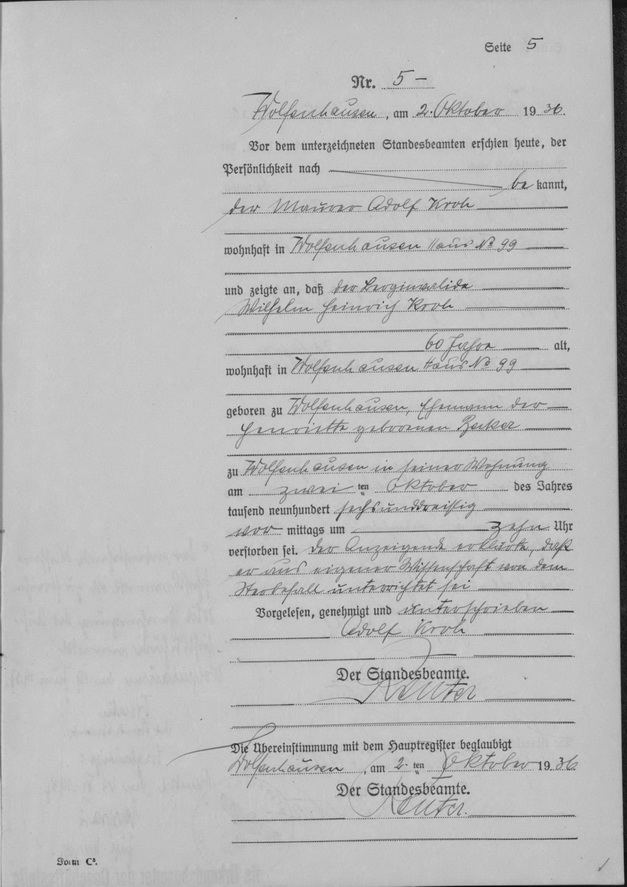 Seite 5
Nr. 5 –
Wolfenhausen, am 2. Oktober 1936.
Vor dem unterzeichneten Standesbeamten erschien heute, der
Persönlichkeit nach
be kannt,
der Maurer Adolf Kroh
wohnhaft in Wolfenhausen Haus No 99
und zeigte an, daß der Berginvalide
Wilhelm Heinrich Kroh
60 Jahre alt,
wohnhaft in Wolfenhausen Haus No 99
geboren zu Wolfenhausen, Ehemann der
Henriette geborenen
zu Wolfenhausen in seiner Wohnung
am zwei ten Oktober des Jahres
tausend neunhundert sechsunddreißig
vor mittags um zehn Uhr
verstorben sei. Der Anzeigende erklärte, daß
er aus eigener Wissenschaft von dem
Sterbefall unterrichtet sei
Vorgelesen, genehmigt und unterschrieben
Adolf Kroh
Der Standesbeamte.
Reuter
Die Übereinstimmung mit dem Hauptregister beglaubigt
Wolfenhausen, am 2. ten Oktober 1936
Der Standesbeamte.
Reuter.
Form C².